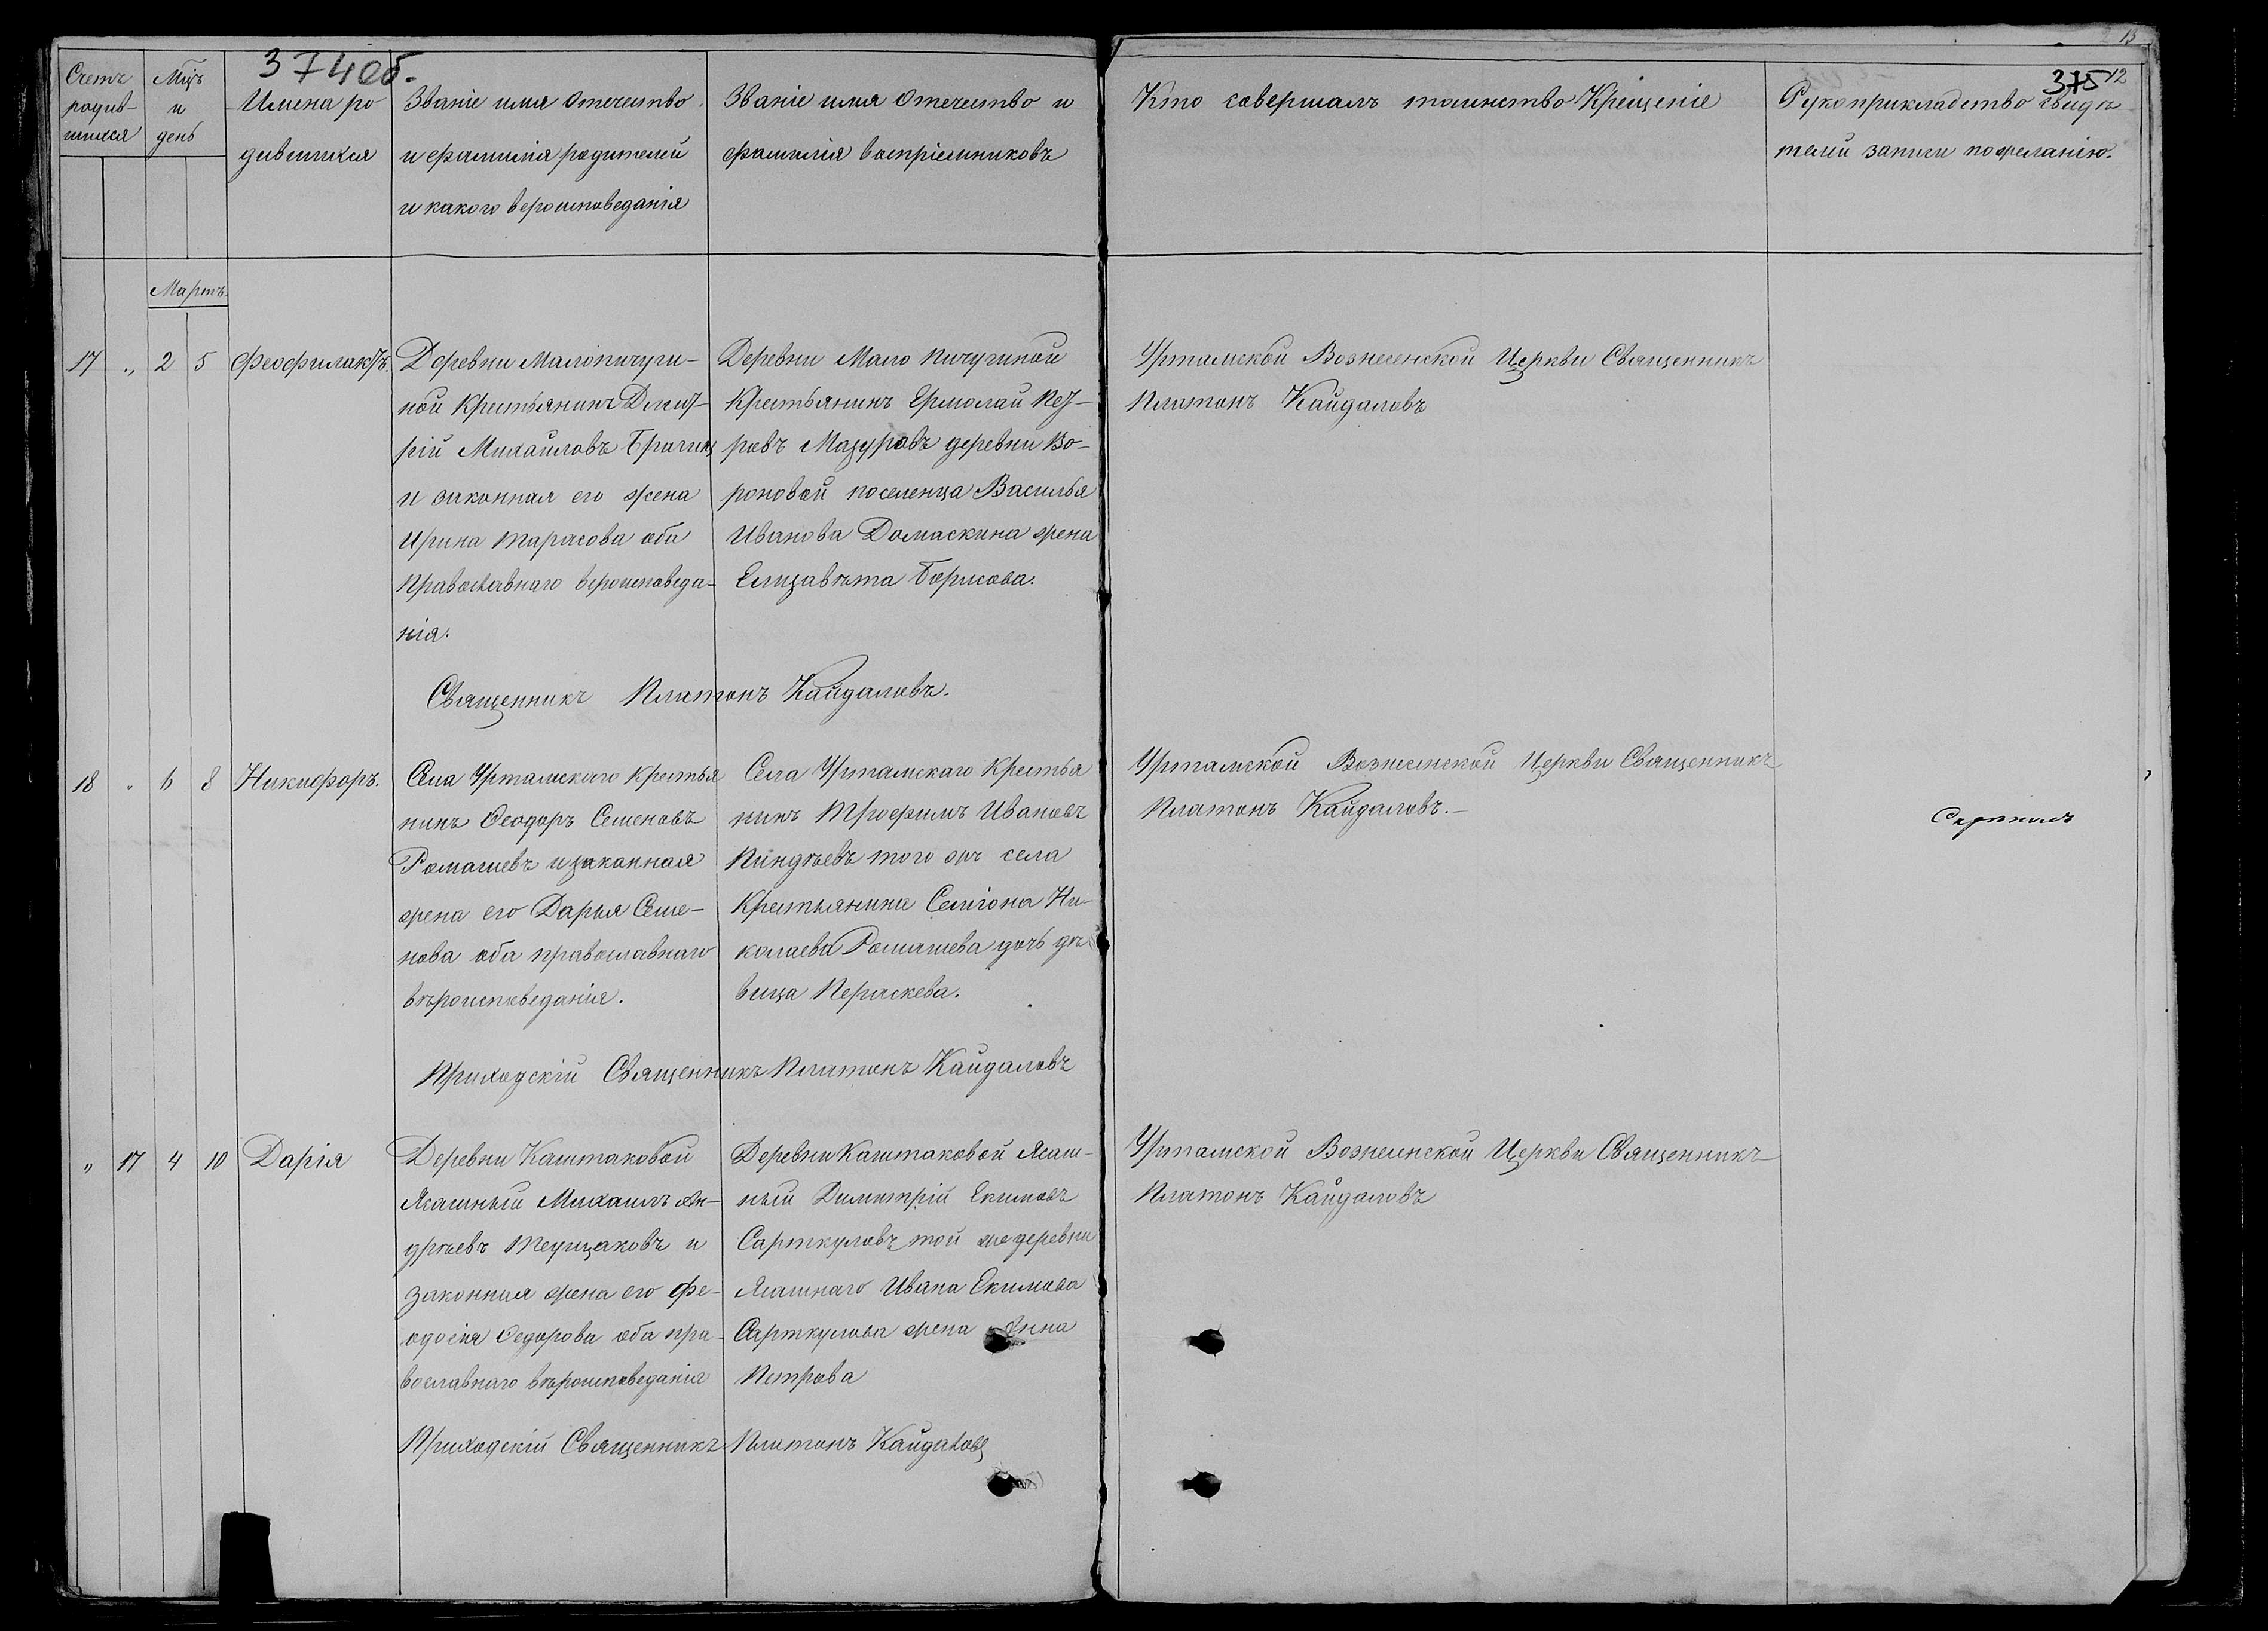 374об.
Счетъ
родив-
шихся
Мцъ
и
день
Имена ро
дившихся
Званіе имя отечество
и фамилія родителей
и какого вероисповеданія
Званіе имя отечество и
фамилія воспріемниковъ
Кто совершалъ таинство Крещеніе
375 12
13
Рукоприкладство свидѣ
телей записи по желанію.
Мартъ.
17 „ 2 5 Феофилактъ.
Деревни Малопичуги-
ной Крестьянинъ Дмит-
рій Михаиловъ Брагинъ
и законная его жена
Ирина Тарасова оба
православнаго вероисповеда-
нія.
Деревни Мало Пичугиной
Крестьянинъ Ермолай Пет-
ровъ Мазуровъ деревни Во-
роновой поселенца Василья
Иванова Домаскина жена
Елизавѣта Борисова.
Уртамской Вознесенской Церкви Священникъ
Платонъ Кайдаловъ
Священникъ Платонъ Кайдаловъ.
18 „ 6 8 Никифоръ.
Села Уртамскаго Крестья
нинъ Ѳеодоръ Семеновъ
Ромашевъ и законная
жена его Дарья Семе-
нова оба православнаго
вѣроисповеданія.
Села Уртамскаго Крестья
нинъ Трофимъ Ивановъ
Пиндѣевъ того жъ села
Крестьянина Семіона Ни-
колаева Ромашева дочь дѣ
вица Пераскева.
Уртамской Вознесенской Церкви Священникъ
Платонъ Кайдаловъ.-
Приходскій Священникъ Платонъ Кайдаловъ
„ 17 4 10 Дарія
Деревни Каштаковой
Ясашный Михаилъ Ан-
дрѣевъ Теущаковъ и
законная жена его Фе-
одосія Ѳедорова оба пра-
вославнаго вѣроисповеданія
Деревни Каштаковой Ясаш-
ный Димитрій Екимовъ
Сарткуловъ той же деревни
Ясашнаго Ивана Екимова
Сарткулова жена Анна
Петрова
Уртамской Вознесенской Церкви Священникъ
Платонъ Кайдаловъ
Приходскій Священникъ Платонъ Кайдаловъ